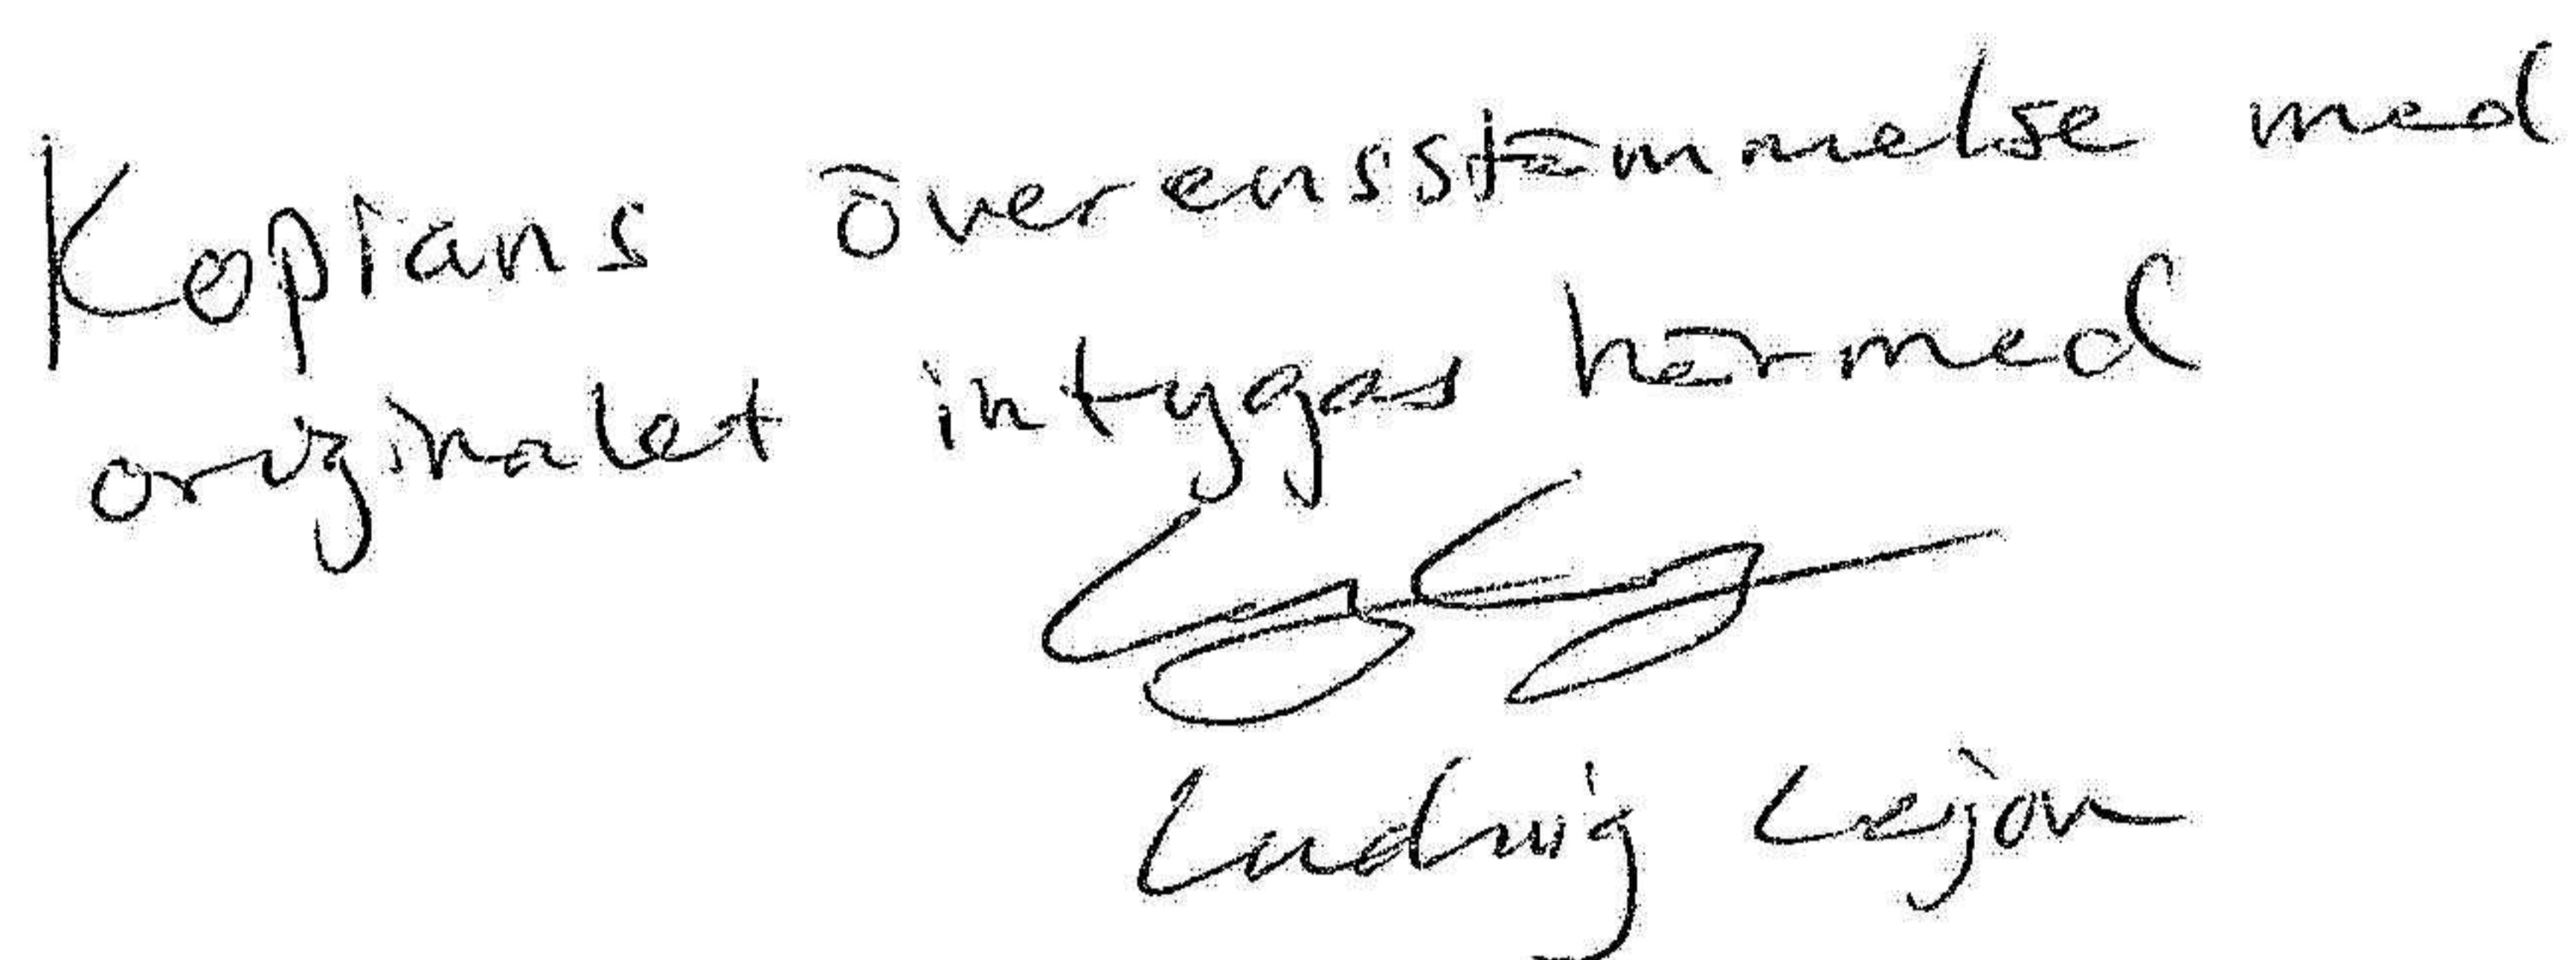 Kopians överensstämmelse med
originalet intygas härmed
Ludwig Lejon